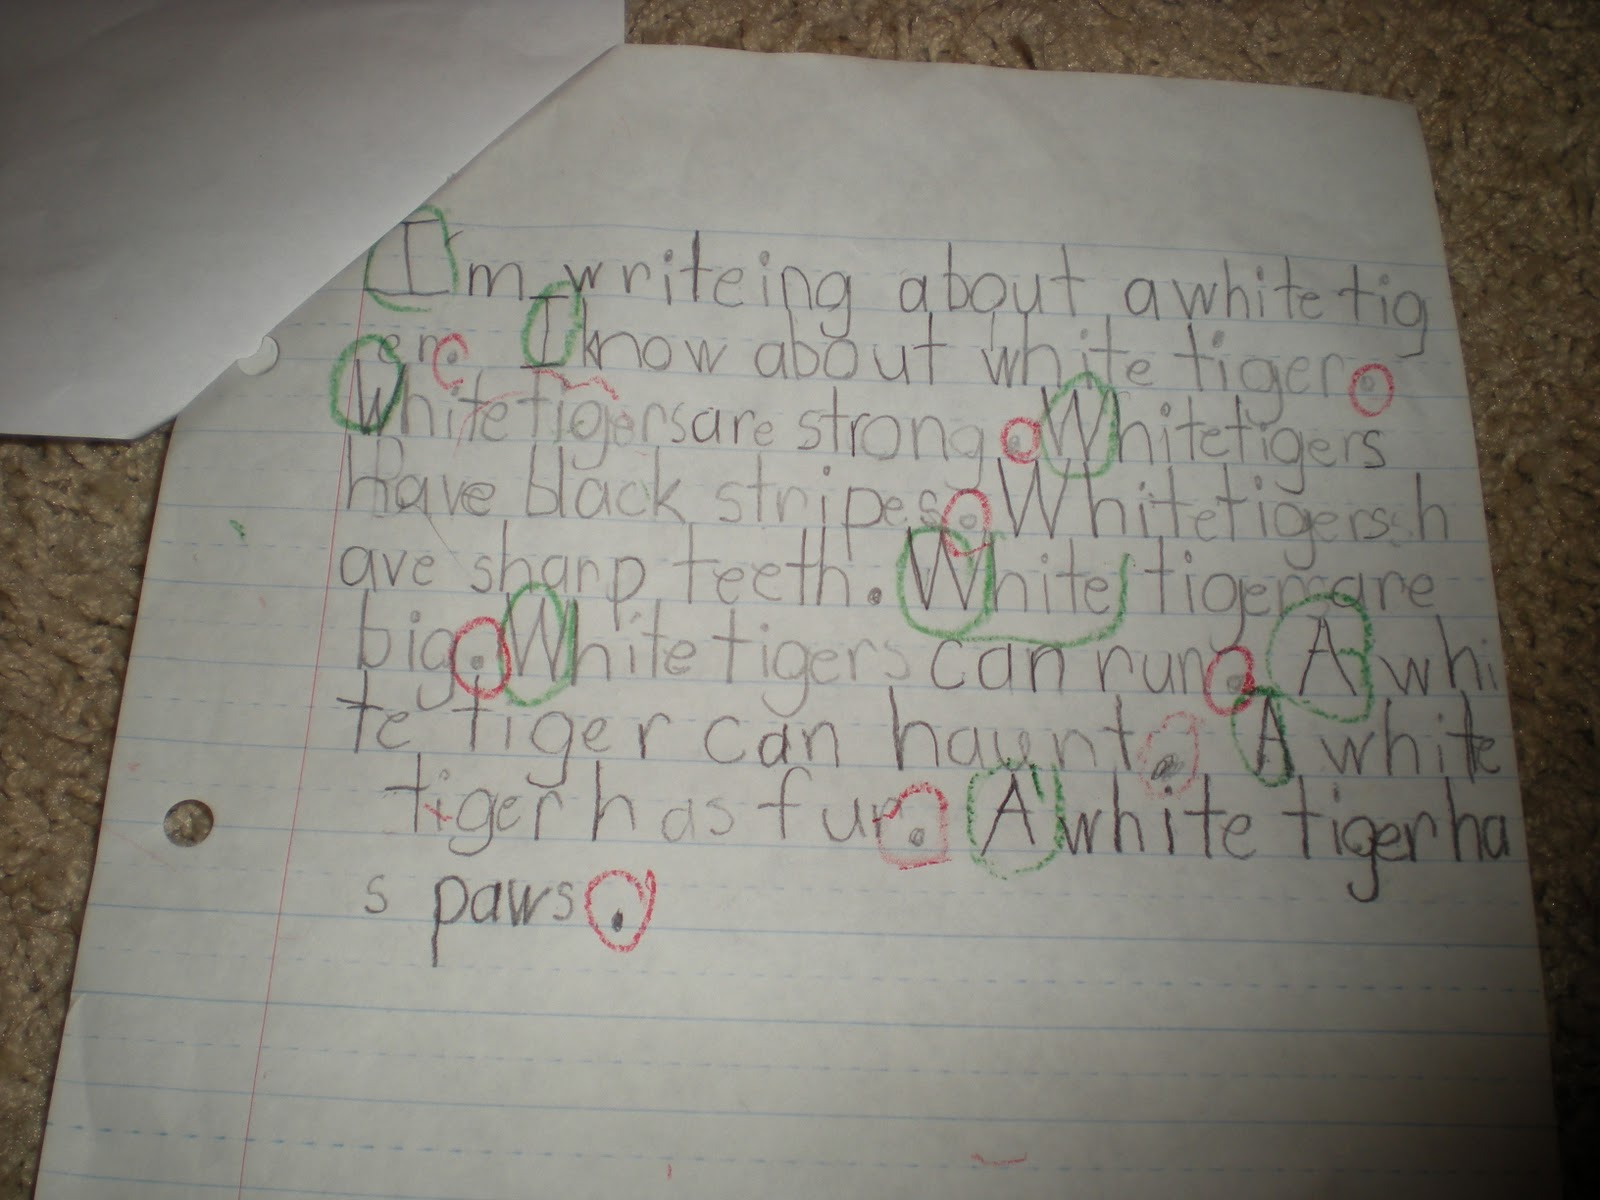 I'm writeing about a white tig
er. I know about white tiger.
White tigers are strong. White tigers
have black stripes. White tigers h
ave sharp teeth. White tiger are
big. White tigers can run. A whi
te tiger can haunt. A white
tiger has fur. A white tiger ha
s paws.